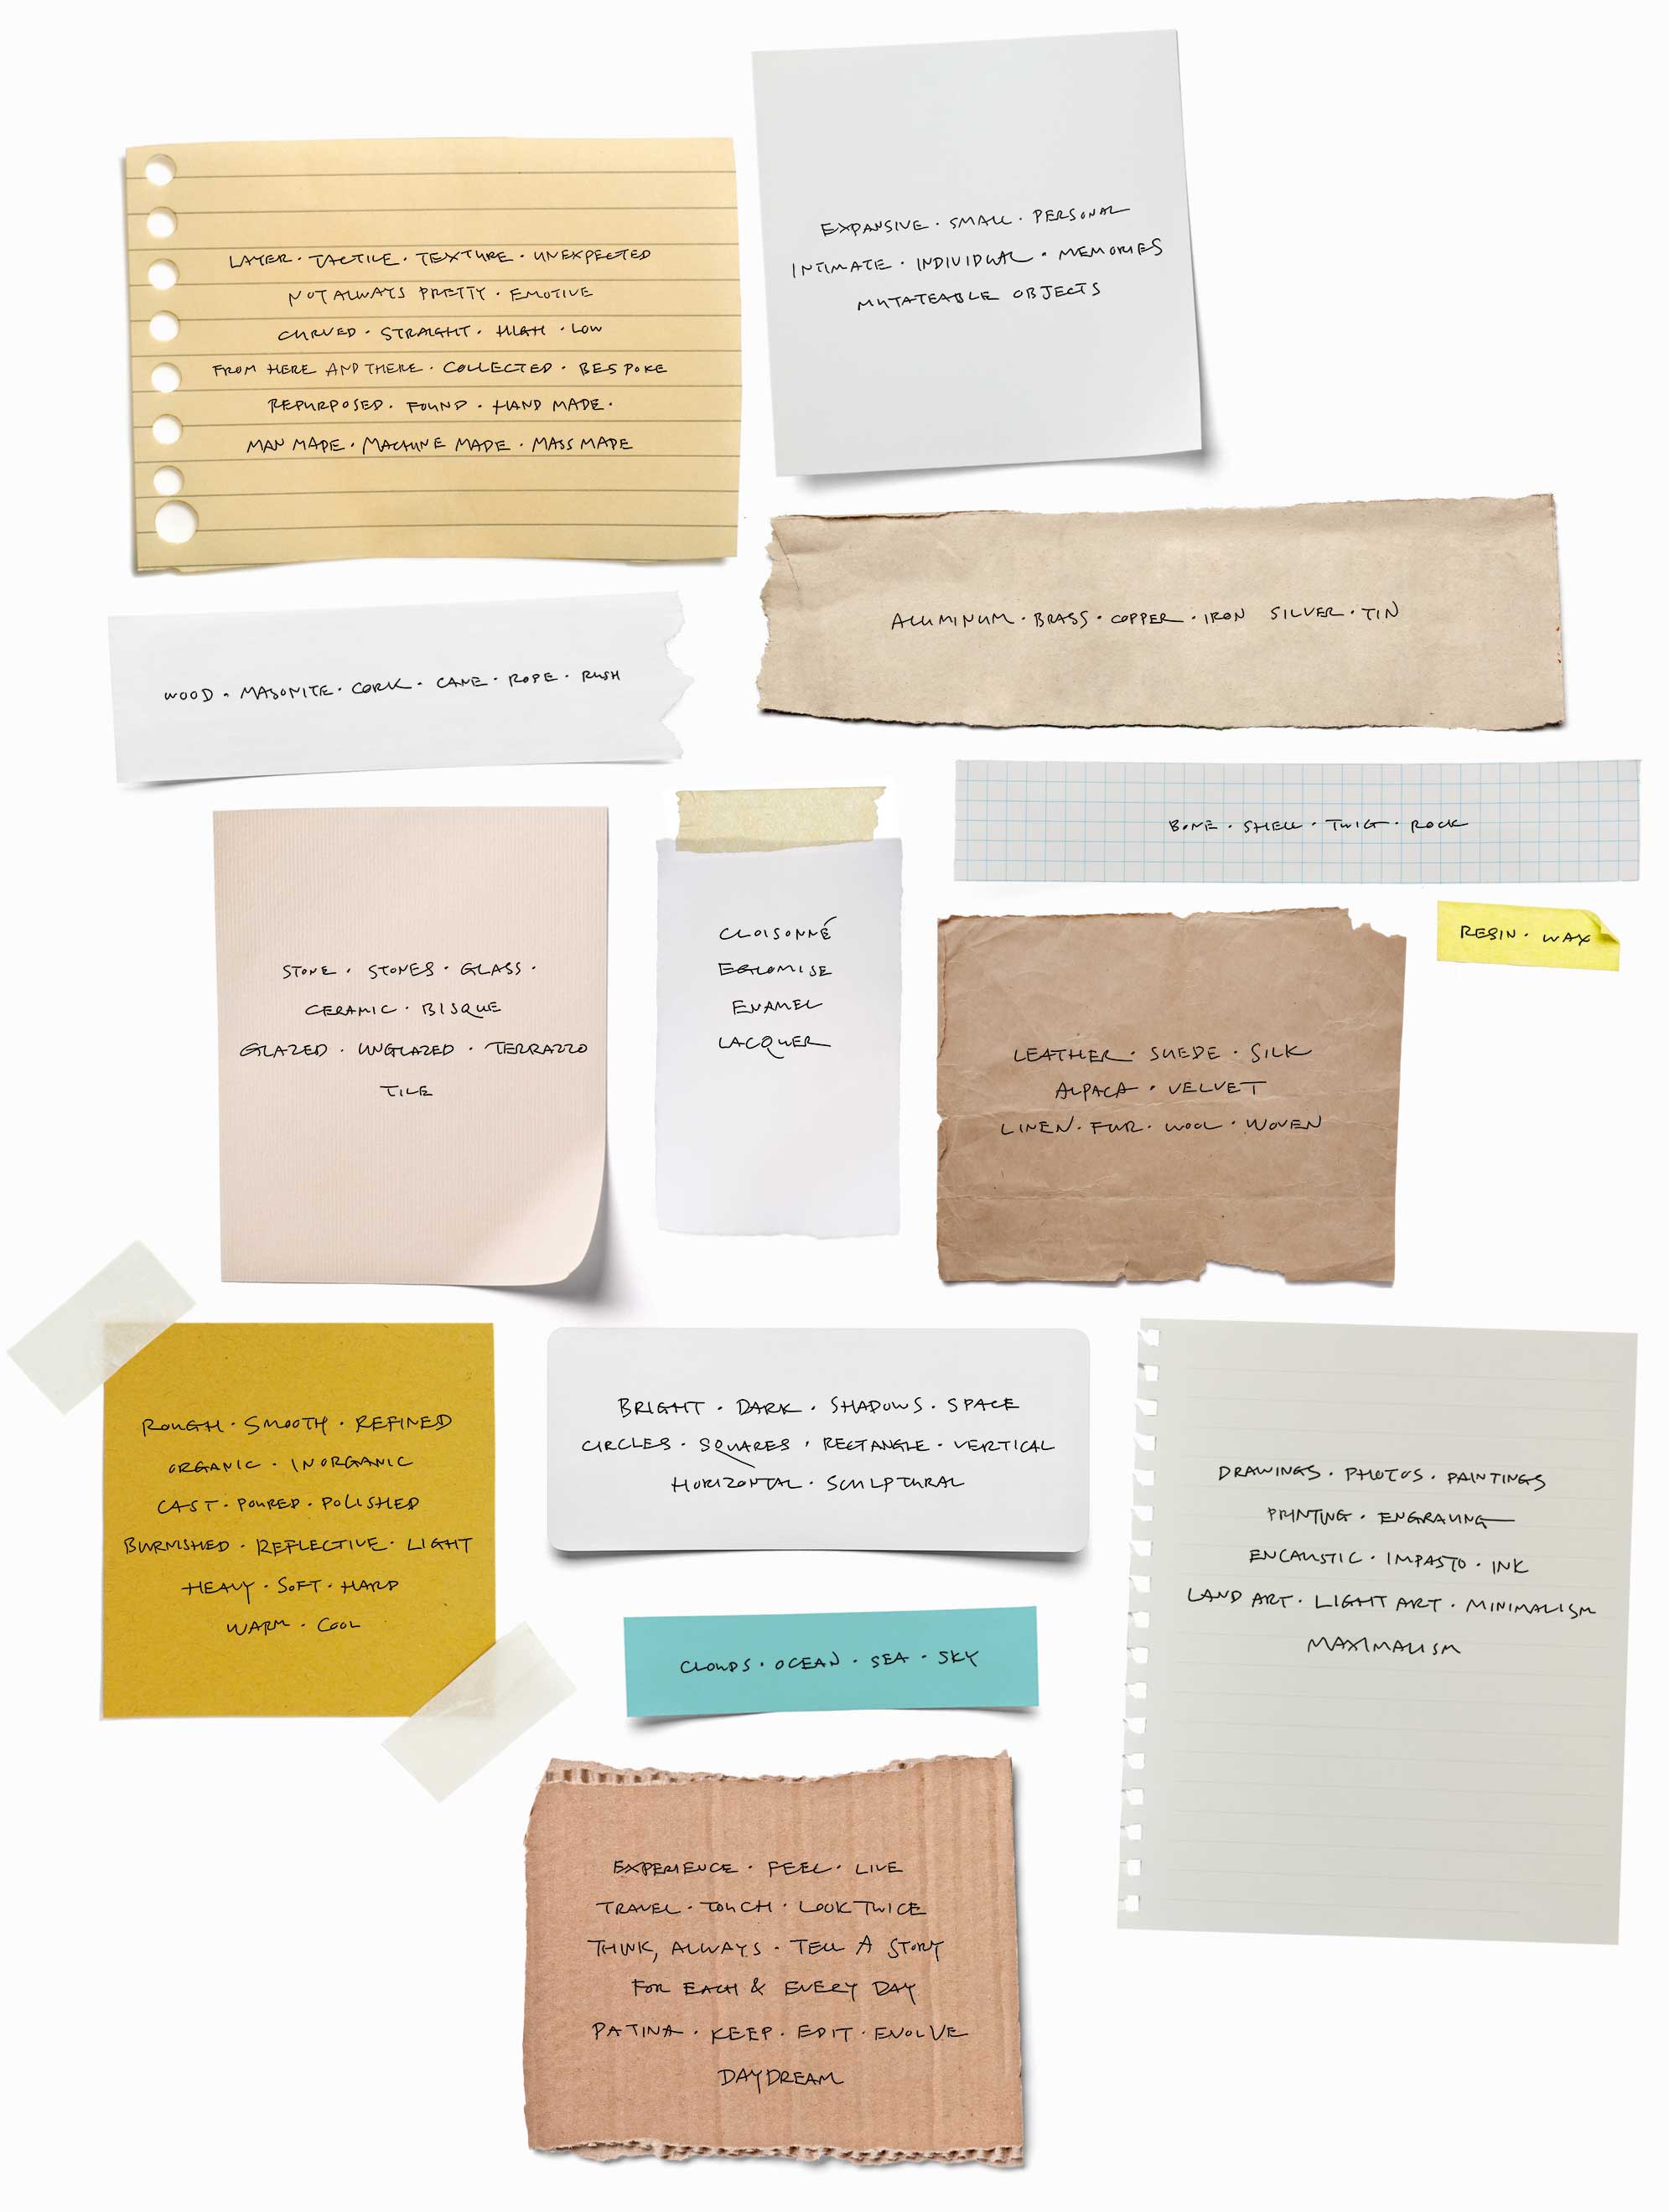 EXPANSIVE · SMALL · PERSONAL
INTIMATE · INDIVIDUAL · MEMORIES
MUTATEABLE OBJECTS
LAYER · TACTILE · TEXTURE · UNEXPECTED
NOT ALWAYS PRETTY · EMOTIVE
CURVED · STRAIGHT · HIGH · LOW
FROM HERE AND THERE · COLLECTED · BESPOKE
REPURPOSED · FOUND · HAND MADE ·
MAN MADE · MACHINE MADE · MASS MADE
ALUMINUM · BRASS · COPPER · IRON SILVER · TIN
WOOD · MASONITE · CORK · CANE · ROPE · RUSH
BONE · SHELL · TWIG · ROCK
STONE · STONES · GLASS ·
CERAMIC · BISQUE
GLAZED · UNGLAZED · TERRAZZO
TILE
CLOISONNÉ
EGLOMISE
ENAMEL
LACQUER
RESIN · WAX
LEATHER · SUEDE · SILK
ALPACA · VELVET
LINEN · FUR · WOOL · WOVEN
ROUGH · SMOOTH · REFINED
ORGANIC · INORGANIC
CAST · POURED · POLISHED
BURNISHED · REFLECTIVE · LIGHT
HEAVY · SOFT · HARD
WARM · COOL
BRIGHT · DARK · SHADOWS · SPACE
CIRCLES · SQUARES · RECTANGLE · VERTICAL
HORIZONTAL · SCULPTURAL
DRAWINGS · PHOTOS · PAINTINGS
PRINTING · ENGRAVING
ENCAUSTIC · IMPASTO · INK
LAND ART · LIGHT ART · MINIMALISM
MAXIMALISM
CLOUDS · OCEAN · SEA · SKY
EXPERIENCE · FEEL · LIVE
TRAVEL · TOUCH · LOOK TWICE
THINK, ALWAYS · TELL A STORY
FOR EACH & EVERY DAY
PATINA · KEEP · EDIT · EVOLVE
DAYDREAM